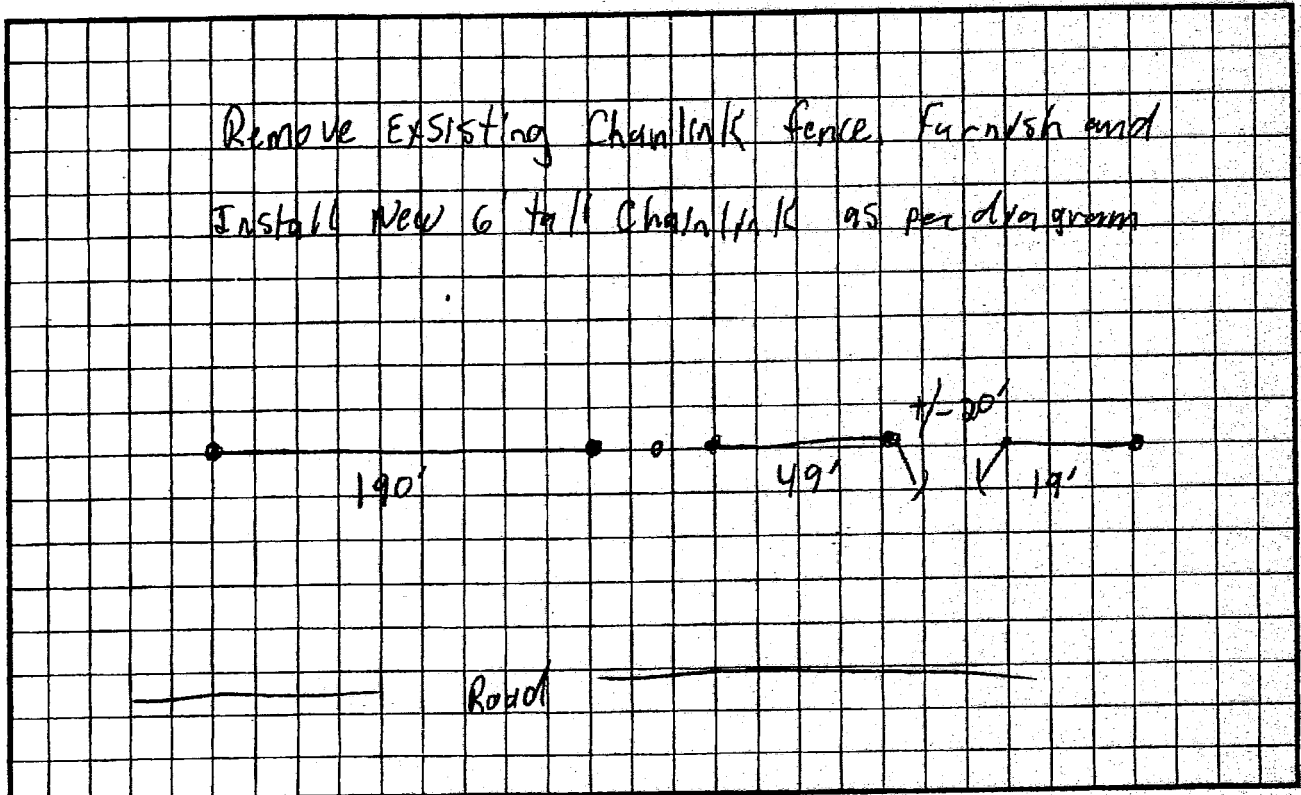 Remove Exsisting Chanlink fence. Furnish and
Install New 6' tall Chainlink as per diagram
+/- 20'
190'
49'
19'
Road